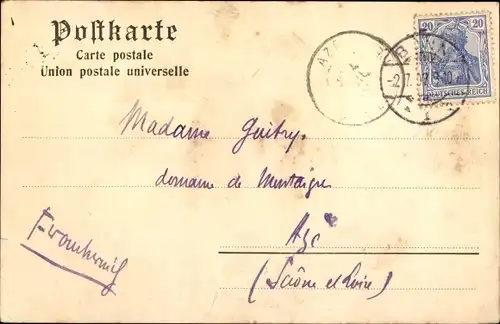 Postkarte
Carte postale
Union postale universelle
20 20
DEUTSCHES REICH
AZÉ
BONN
Madame Guitry
domaine de Montaigre
Azé
(Saône et Loire)
Frankreich